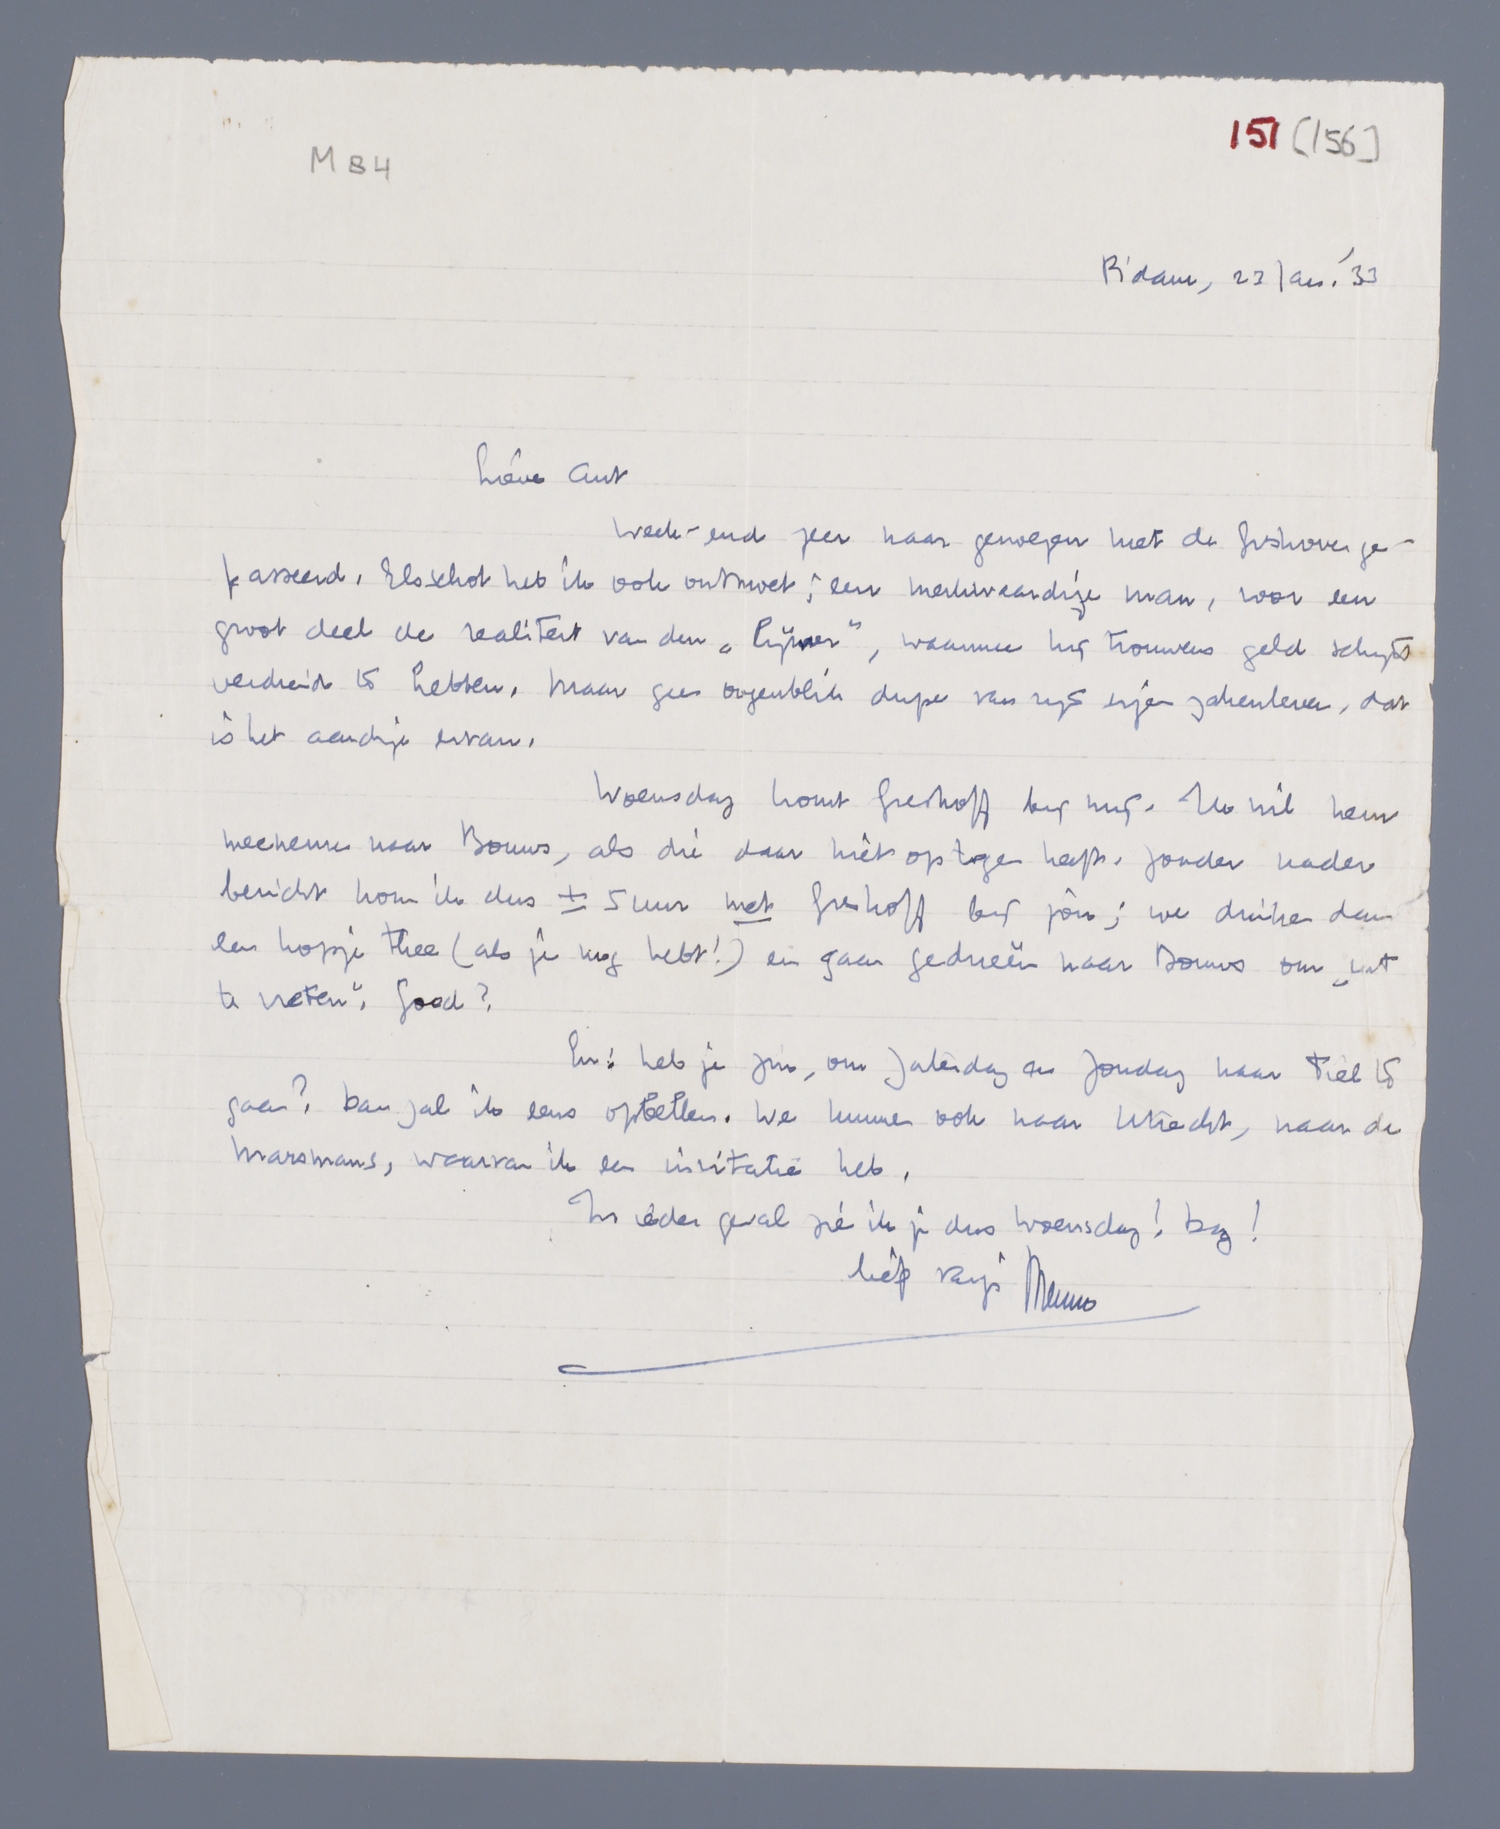 151 [156]
M B4
R'dam, 23 Jan. '33
Lieve Ant
Week-end zeer naar genoegen met de Greshoves ge-
passeerd. Elsschot heb ik ook ontmoet; een merkwaardige man, voor een
groot deel de realiteit van den „Lijmer”, waarmee hij trouwens geld schijnt
verdiend te hebben. Maar geen oogenblik dupe van zijn eigen zakenleven, dat
is het aardige ervan.
Woensdag komt Greshoff bij mij. Ik wil hem
meenemen naar Bouws, als die daar niets op tegen heeft. Zonder nader
bericht kom ik dus ± 5 uur met Greshoff bij jou; we drinken dan
een kopje thee (als je nog hebt!) en gaan gedrieën naar Bouws om „wat
te vreten”. Goed?
En: heb je zin, om Zaterdag en Zondag naar Tiel te
gaan? Dan zal ik eens opbellen. We kunnen ook naar Utrecht, naar de
Marsmans, waarvan ik een invitatie heb.
In ieder geval zie ik je dus Woensdag! Dag!
liefs van je Menno